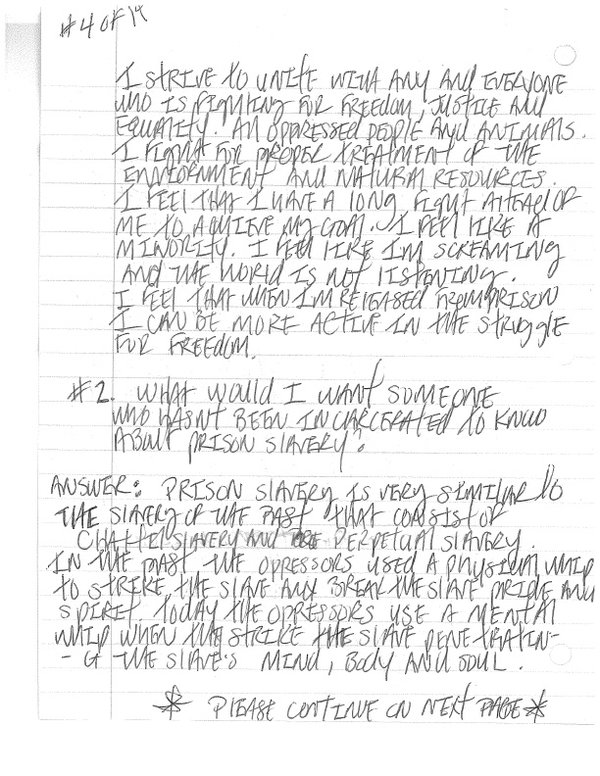 #4 OF 14
I STRIVE TO UNITE WITH ANY AND EVERYONE
WHO IS FIGHTING FOR FREEDOM, JUSTICE AND
EQUALITY. All OPPRESSED PEOPLE AND ANIMALS.
I FIGHT FOR PROPER TREATMENT OF THE
ENVIORNMENT AND NATURAL RESOURCES.
I FEEL THAT I HAVE A LONG FIGHT AHEAD OF
ME TO AQUIEVE MY GOAL. I FEEL LIKE A
MINORITY. I FEEL LIKE I'M SCREAMING
AND THE WORLD IS NOT LISTENING.
I FEEL THAT WHEN I'M RELEASED FROM PRISON
I CAN BE MORE ACTIVE IN THE STRUGGLE
FOR FREEDOM.
#2. WHAT WOULD I WANT SOMEONE
WHO HASN'T BEEN INCARCERATED TO KNOW
ABOUT PRISON SLAVERY?
ANSWER: PRISON SLAVERY IS VERY SIMILAR TO
THE SLAVERY OF THE PAST THAT CONSIST OF
CHATTEL SLAVERY AND PERPETUAL SLAVERY.
IN THE PAST THE OPRESSORS USED A PHYSICAL WHIP
TO STRIKE, THE SLAVE AND BREAK THE SLAVE PRIDE AND
SPIRIT. TODAY THE OPRESSORS USE A MENTAL
WHIP WHEN THEY STRIKE THE SLAVE PENETRATIN-
- G THE SLAVE'S MIND, BODY AND SOUL.
* PLEASE CONTINUE ON NEXT PAGE *